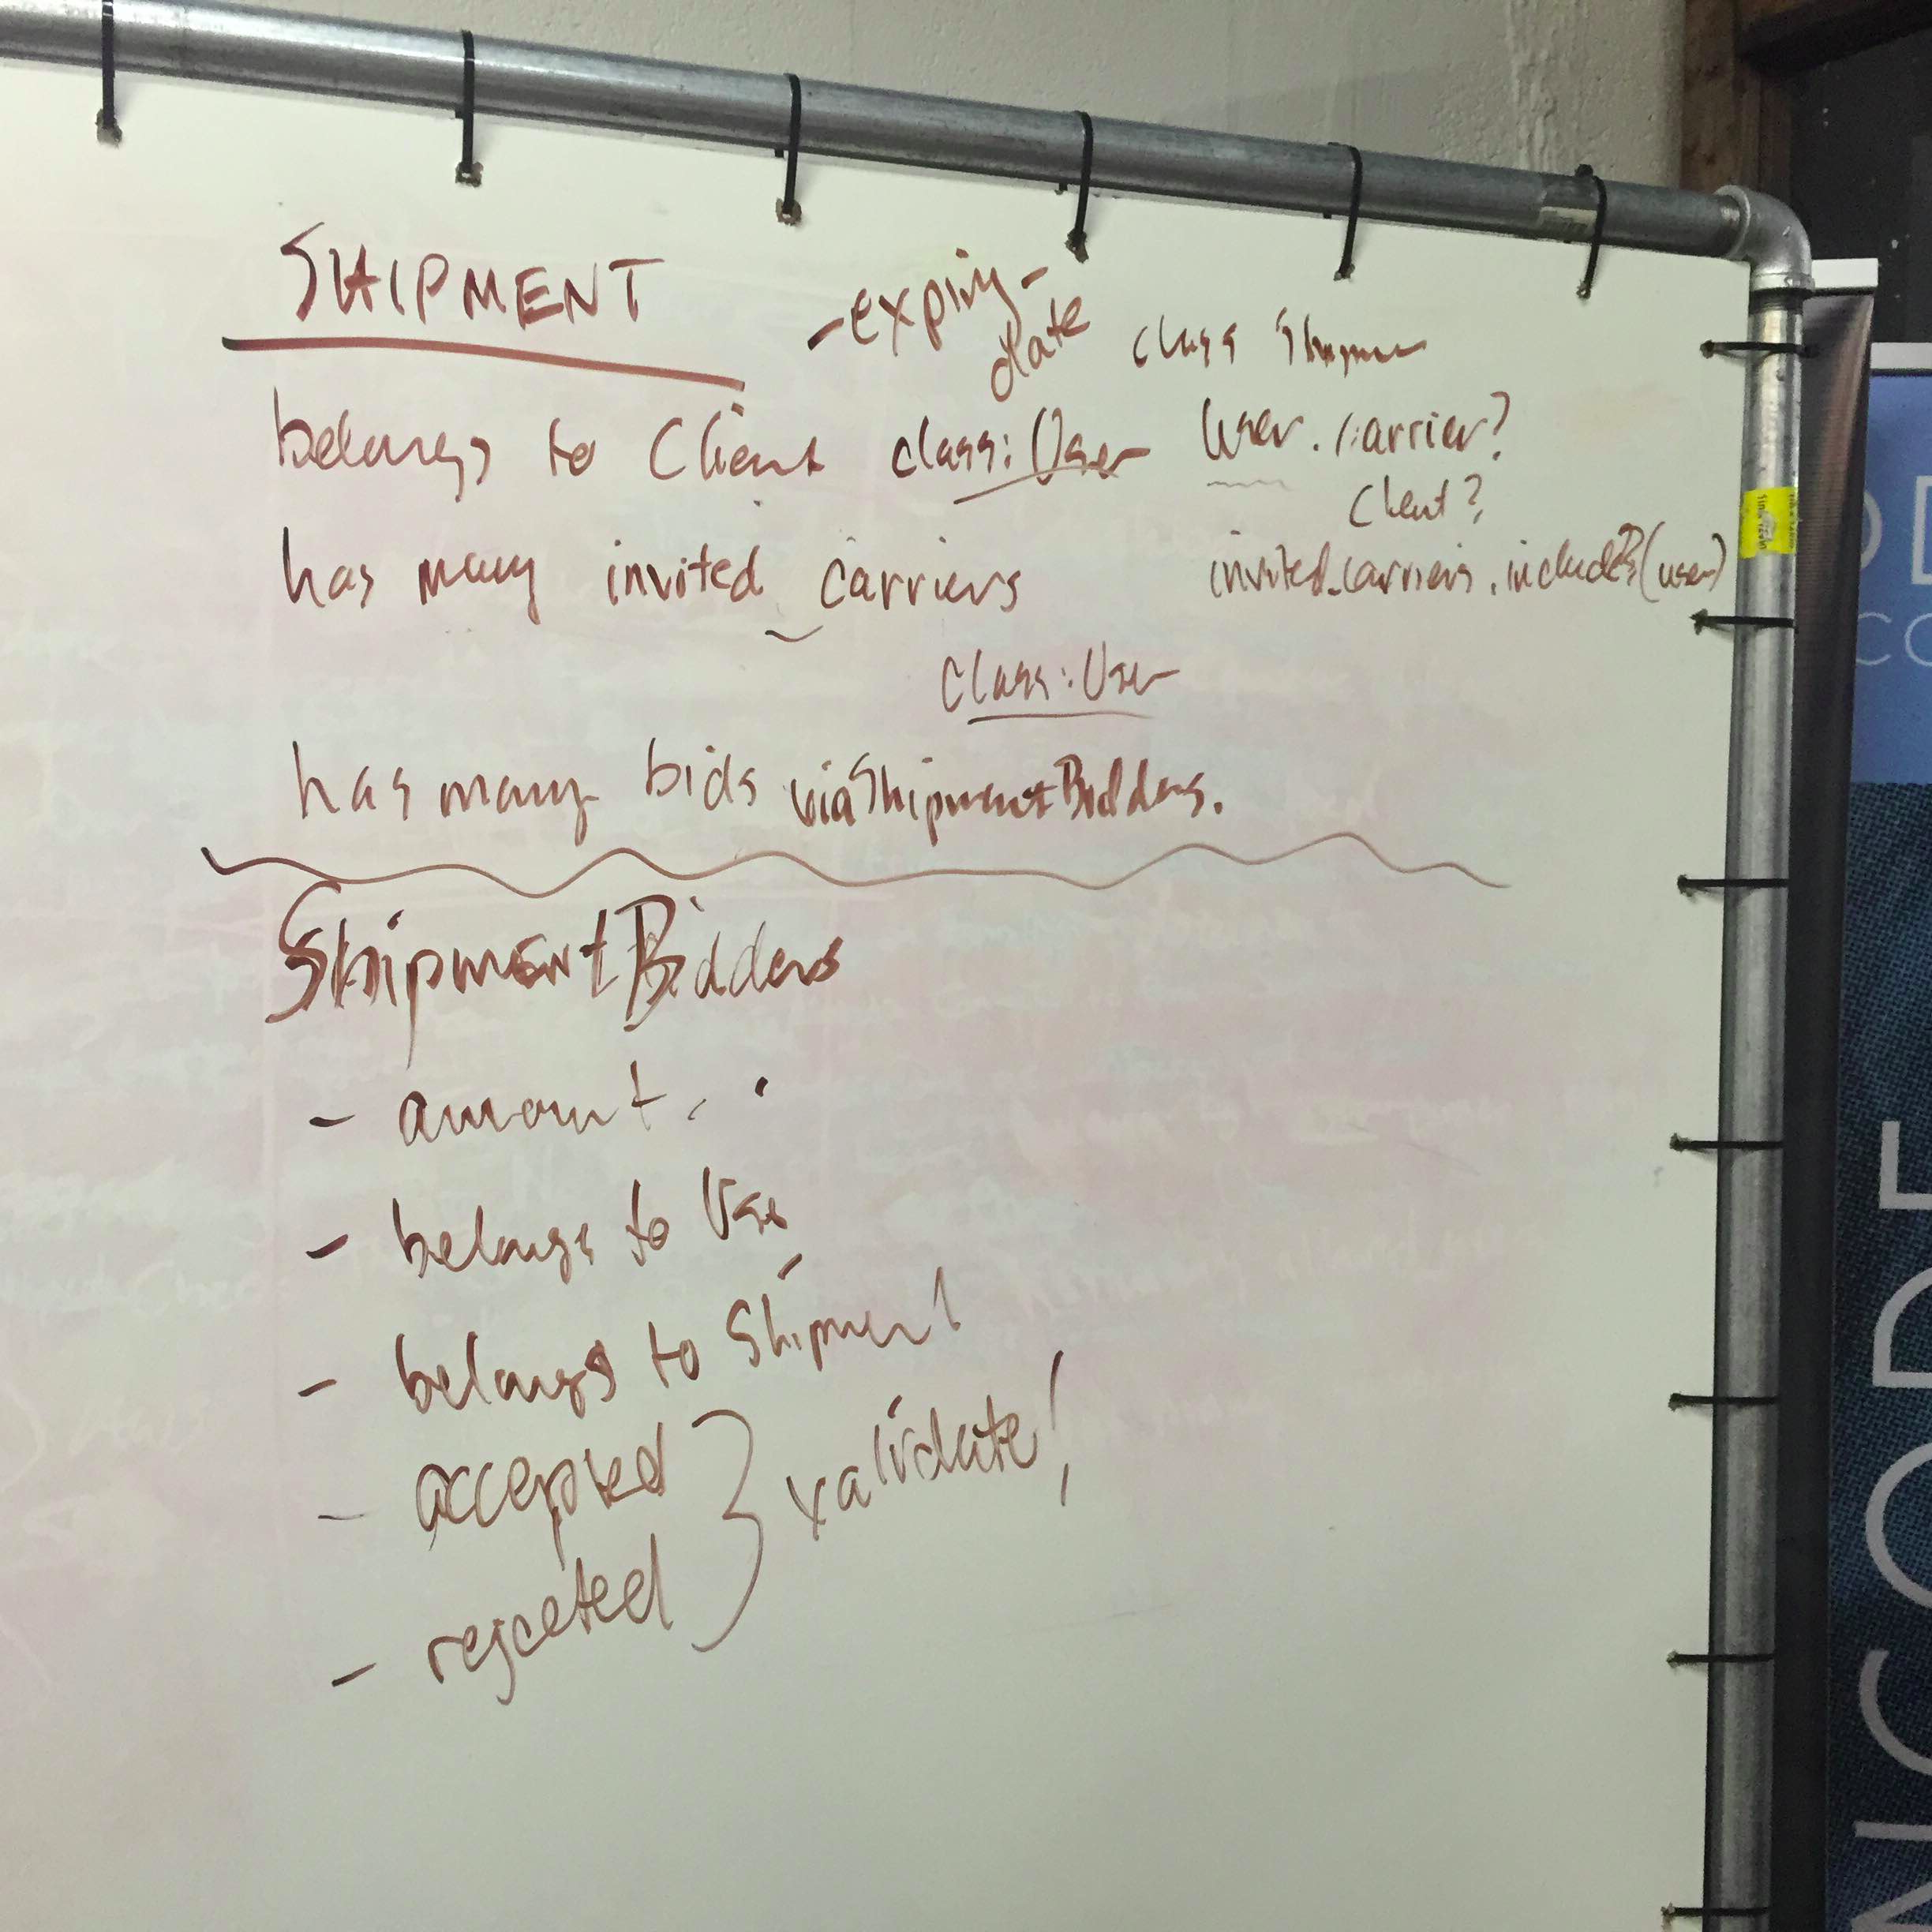 SHIPMENT
- expiry-
date
class Shipmen
belongs to Client class: User
User.carrier?
Client?
has many invited_carriers
invited_carriers.include?(user)
class: User
has many bids via ShipmentBidders.
ShipmentBidders
- amount
- belongs to User
- belongs to Shipment
- accepted
- rejected
validate!